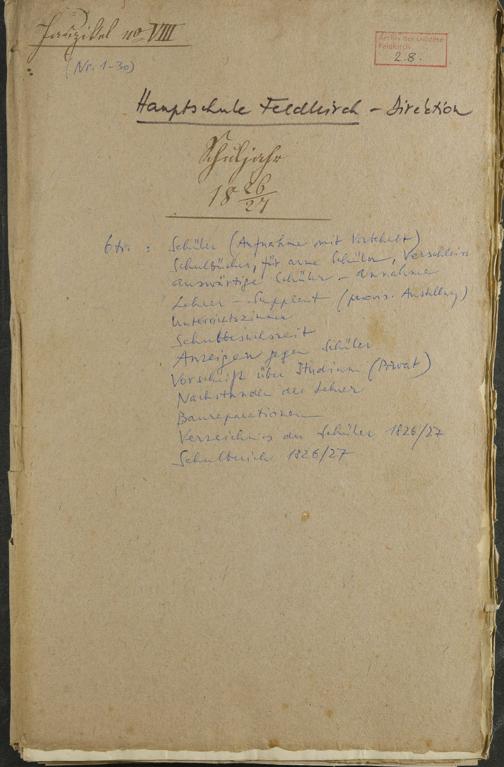 Faszikel no VIII
(Nr. 1-30)
Archiv der Stadt
Feldkirch
2.8.
Hauptschule Feldkirch - Direktion
Schuljahr
1826/27
btr. : Schüler (Aufnahme mit Vorbehalt)
Schulbücher, für arme Schüler, Verschleiss
auswärtige Schüler - Annahme
Lehrer - Supplent (provis. Anstellung)
Unterrichtszimmer
Schulbesuchszeit
Anzeigen gegen Schüler
Vorschrift über Studium (Privat)
Nachstunden der Lehrer
Baureparationen
Verzeichnis der Schüler 1826/27
1826/27